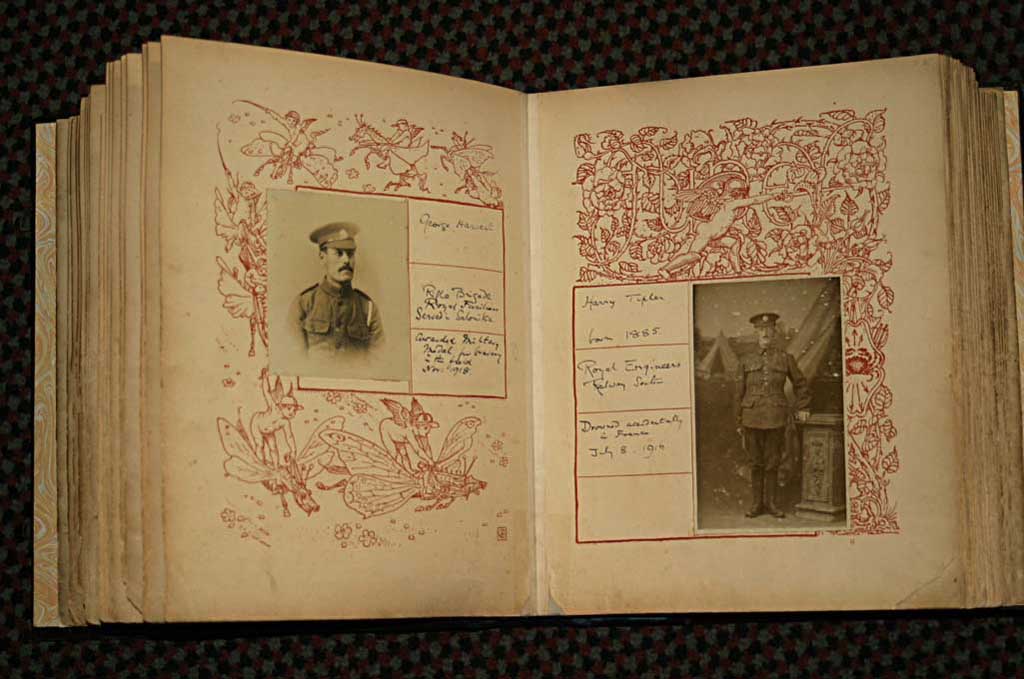 George
Rifle Brigade
Royal Fusiliers
Served - Salonika
Awarded Military
Medal for bravery
in the field
Nov. 1918.
Harry
born 1885
Royal Engineers
Railway Section
Drowned accidentally
in France
July 8. 1916